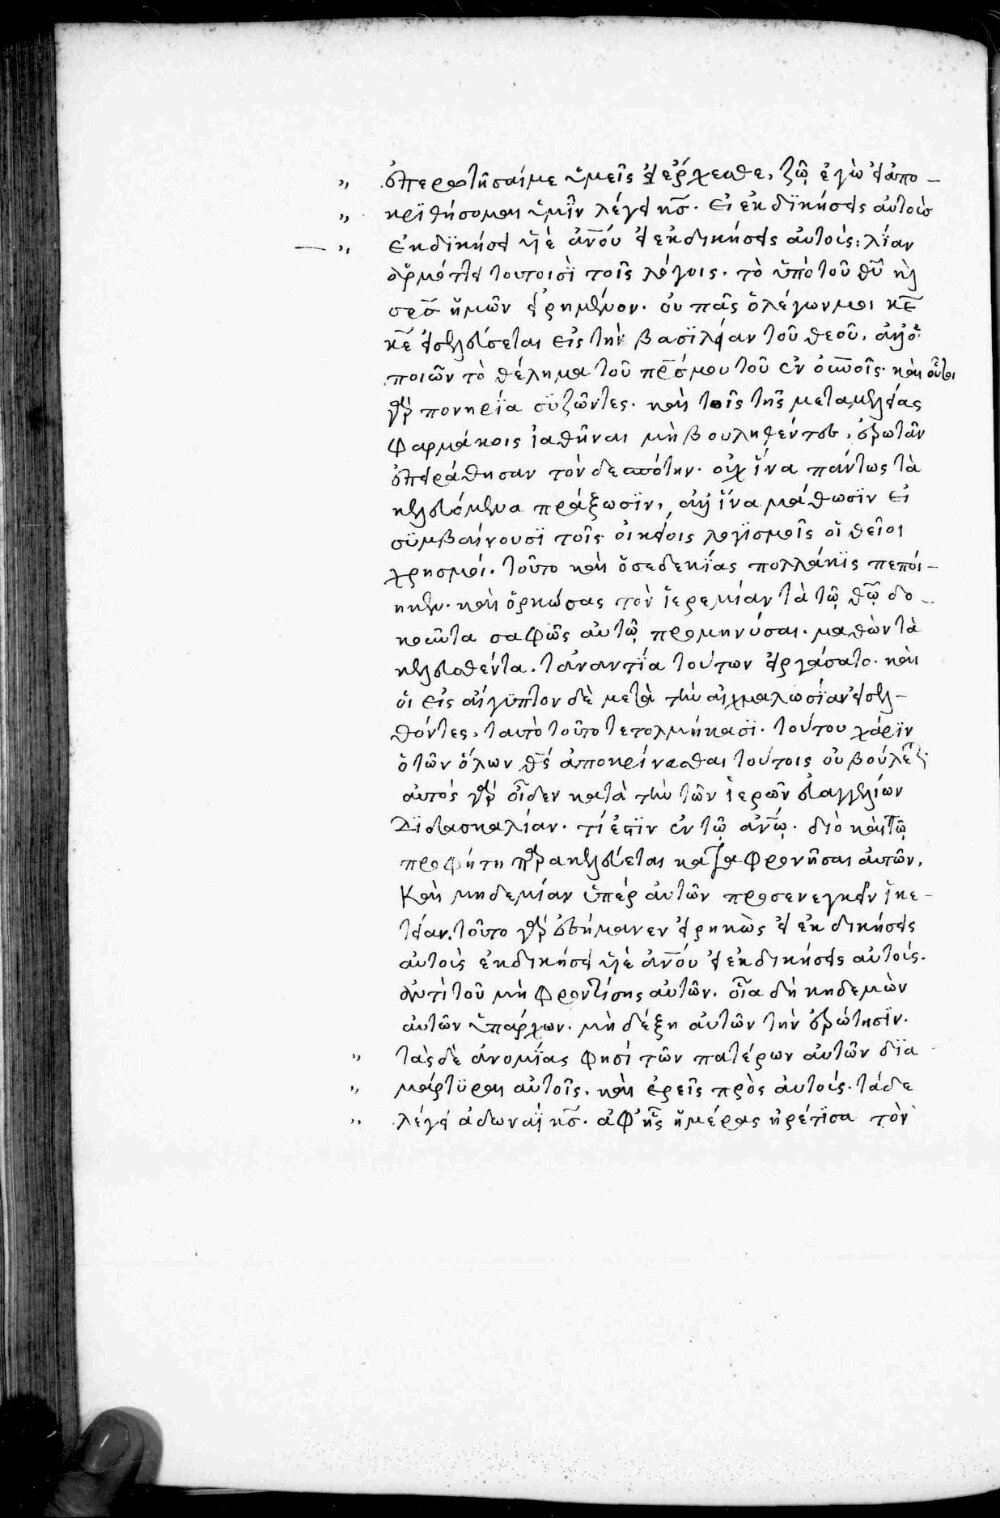 ἐπερωτῆσαί με ὑμεῖς εἰ ἔρχεσθε, ζῶ ἐγὼ εἰ ἀπο-
κριθήσομαι ὑμῖν λέγει κς̅. εἰ ἐκδικήσεις αὐτοὺς
ἐκδικήσει υἱὲ ἀνου̅ εἰ ἐκδικήσεις αὐτούς: λίαν
ἁρμόττει τουτοισὶ τοῖς λόγοις. τὸ ὑπὸ τοῦ θυ̅ καὶ
σρσ̅ ἡμῶν εἰρημένον. οὐ πᾶς ὁ λέγων μοι κε̅
κε̅ εἰσελεύσεται εἰς τὴν βασιλείαν τοῦ θεοῦ. ἀλλ' ὁ
ποιῶν τὸ θέλημα τοῦ πρσ̅ μου τοῦ ἐν οὐνοῖς̅. καὶ οὗτοι
γὰρ πονηρία συζῶντες. καὶ τοῖς τῆς μεταμελείας
φαρμάκοις ἰαθῆναι μὴ βουληθέντες, ἐρωτᾶν
ἐπειράθησαν τὸν δεσπότην. οὐχ ἵνα πάντως τὰ
κελευόμενα πράξωσιν, ἀλλ' ἵνα μάθωσιν εἰ
συμβαίνουσι τοῖς οἰκείοις λογισμοῖς οἱ θεῖοι
χρησμοί. τοῦτο καὶ ὁ σεδεκίας πολλάκις πεποί-
ηκεν. καὶ ὁρκώσας τὸν ἱερεμίαν τὰ τῷ θω̅ δο-
κοῦντα σαφῶς αὐτῷ προμηνύσαι. μαθὼν τὰ
κελευσθέντα. τἀναντία τούτων εἰργάσατο. καὶ
οἱ εἰς αἴγυπτον δὲ μετὰ τὴν αἰχμαλωσίαν εἰσελ-
θόντες, ταυτὸ τοῦτο τετολμήκασι. τούτου χάριν
ὁ τῶν ὅλων θς̅ ἀποκρίνασθαι τούτοις οὐ βούλεται
αὐτὸς γὰρ οἶδεν κατὰ τὴν τῶν ἱερῶν εὐαγγελίων
διδασκαλίαν. τί ἐστιν ἐν τῷ ανω̅. διὸ καὶ τῷ
προφήτη παρακελεύεται καταφρονῆσαι αὐτῶν,
καὶ μηδεμίαν ὑπὲρ αὐτῶν προσενεγκεῖν ἱκε-
τείαν. τοῦτο γὰρ ἐσήμανεν εἰρηκὼς εἰ ἐκδικήσεις
αὐτοὺς ἐκδικήσει υἱὲ ἀνου̅ εἰ ἐκδικήσεις αὐτούς.
ἀντὶ τοῦ μὴ φροντίσης αὐτῶν. οἷα δὴ κηδεμὼν
αὐτῶν ὑπάρχων. μὴ δέξη αὐτῶν τὴν ἐρώτησιν.
τὰς δὲ ἀνομίας φησὶ τῶν πατέρων αὐτῶν δια
μάρτυραι αὐτοῖς. καὶ ἐρεῖς πρὸς αὐτούς. τάδε
λέγει ἀδωναῒ κς̅. ἀφ' ἧς ἡμέρας ᾑρέτισα τὸν